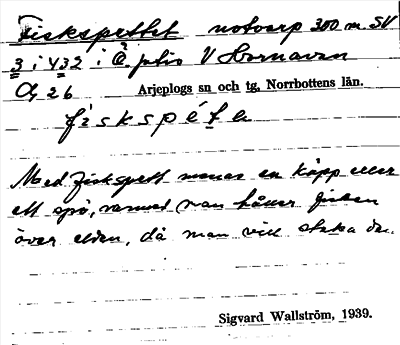 Fiskspettet notvarp 300 m SV
3 i 432 i Ö. ptio V Hornavan
Oj 26 Arjeplogs sn och tg, Norrbottens län.
fiskspéte
Med fiskspett menas en käpp eller
ett spö, varmed man håller fisken
över elden, då man vill steka den.
Sigvard Wallström, 1939.